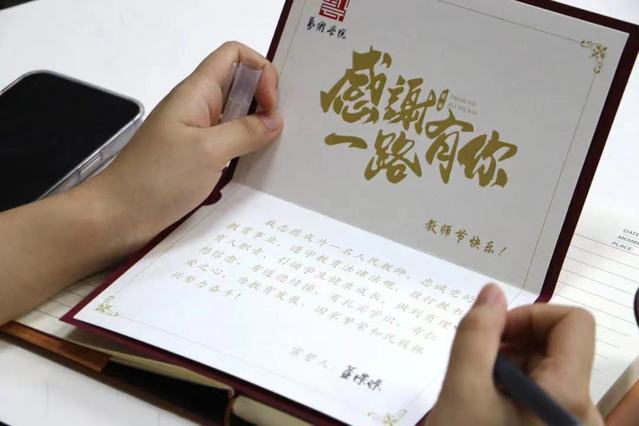 藝術學院
感謝
THANK YOU
ALL THE WAY
一路有你
教师节快乐！
我志愿成为一名人民教师，忠诚党的
教育事业，遵守教育法律法规，履行教书
育人职责，引领学生健康成长，做到有理
想信念、有道德情操、有扎实学识、有仁
爱之心，为教育发展、国家繁荣和民族振
兴努力奋斗！
宣誓人：
DATE
MEMBE
PLACE: